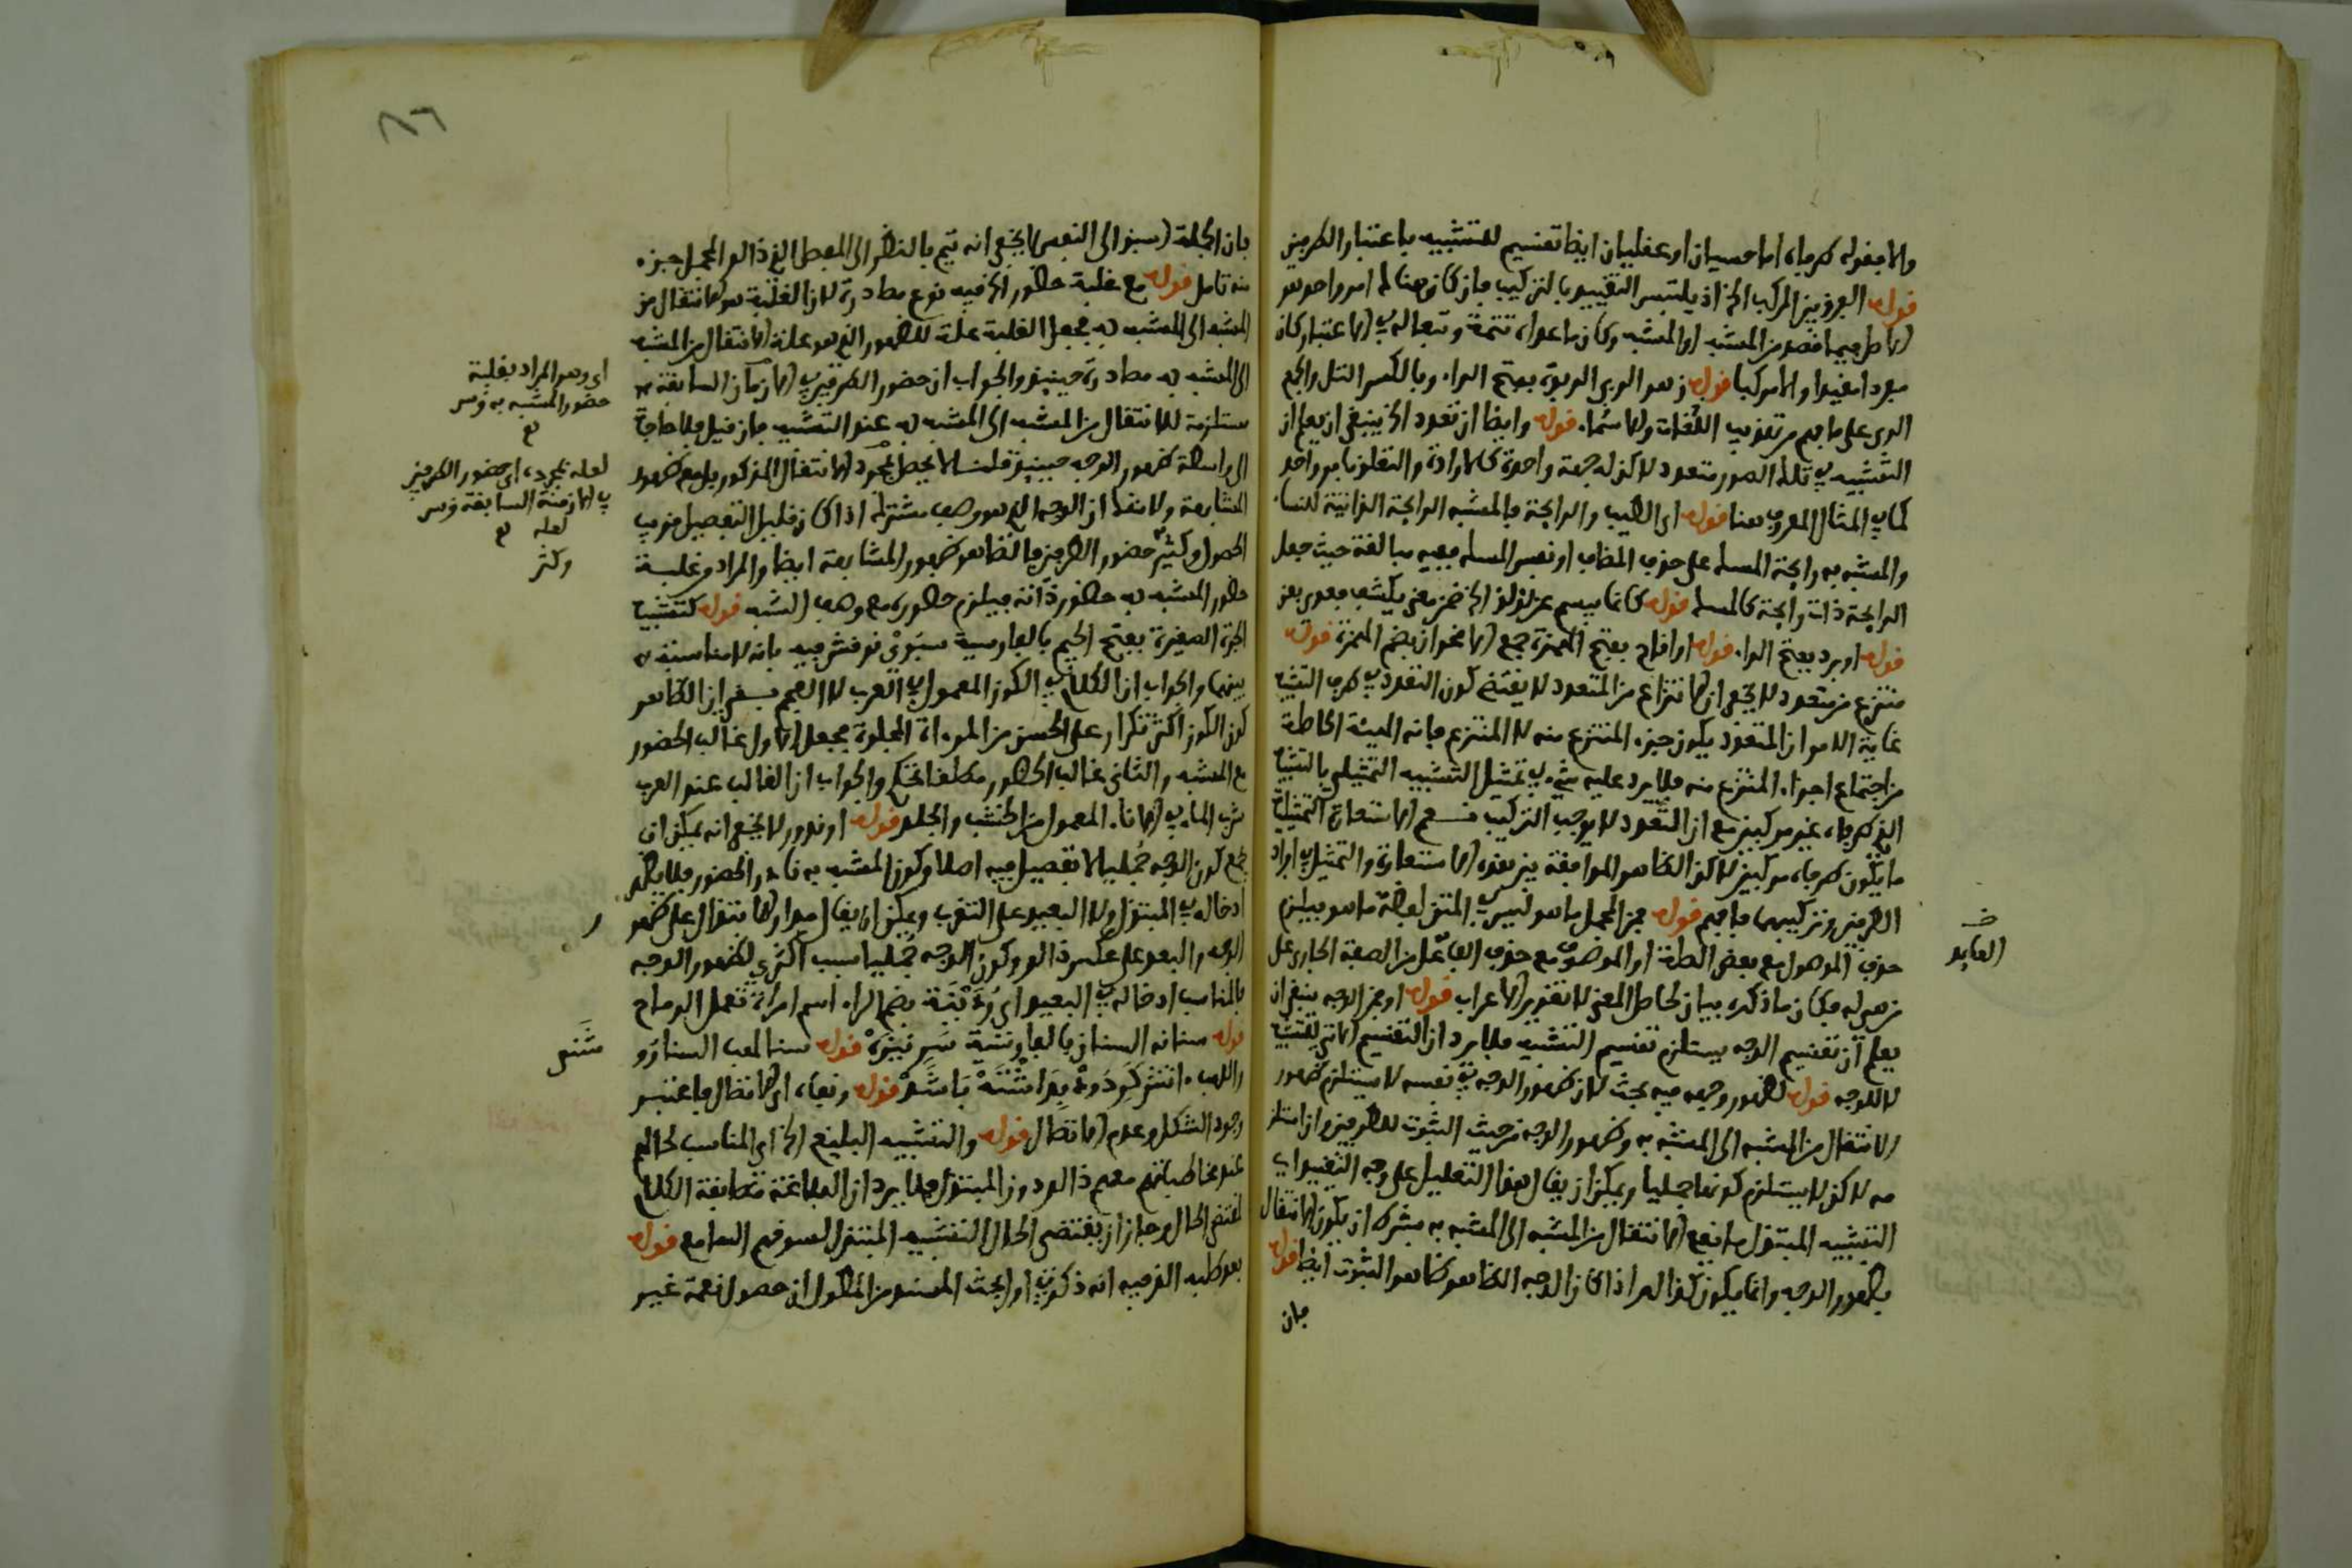 والا فقوله طرفاه اما حسيان او عقليان ايضا تقسيم للتشبيه باعتبار الطرفين
قوله الفرق بين المركب الخ اذ يلتبس التقييد بالتركيب فان كان هناك امر واحد هو
الاصل فيما قصد من المشبه او المشبه به وكان ما عداه تتمة وتبعا له في الاعتبار كان
مفردا مقيدا والا مركبا قوله زهو الربى الربوة بفتح الراء وبالكسر التل والجمع
الربى على ما فهم من تهذيب اللغات والاسماء قوله وايضا ان تعدد الخ ينبغي ان يعلم ان
التشبيه في تلك الصور متعدد لاكن له جهة واحدة كالارادة والتعلق بامر واحد
كما في المثال المعروف هنا قوله اي الطيب والرائحة فالمشبه الرائحة الذاتية للنساء
والمشبه به رائحة المسك على حذف المضاف او نفس المسك ففيه مبالغة حيث جعل
الرائحة ذات رائحة كالمسك قوله كانما يبسم عن لؤلؤ الخ ضمن معنى يكشف فعدي بعن
قوله او برد بفتح الراء قوله او اقاح بفتح الهمزة جمع الاقحوان بضم الهمزة قوله
منتزع من متعدد لا يخفى ان الانتزاع من المتعدد لا يقتضي كون التعدد في طرف التشبيه
غاية الامر ان المتعدد يكون جزء المنتزع منه لا المنتزع فانه الهيئة الحاصلة
من اجتماع اجزاء المنتزع منه فلا يرد عليه شيء في تمثيل التشبيه التمثيلي بالتشبيه
الذي طرفاه غير مركبين مع ان التعدد لا يوجب التركيب نعم الاستعارة التمثيلية
ما يكون طرفاه مركبين لاكن الظاهر الموافقة بين هذه الاستعارة والتمثيل في افراد
الطرفين وتركيبهما فافهم قوله فمن المجمل ما هو ليس في المتن لفظة ما هو فيلزم
حذف الموصول مع بعض الصلة او الموصوف مع حذف الفاعل من الصفة الجاري على
من هي له فكان ما ذكره بيان لحاصل المعنى لا تقدير الاعراب قوله او من الوجه ينبغي ان
يعلم ان تقسيم الوجه يستلزم تقسيم التشبيه فلا يرد ان التقسيم الاتي للتشبيه
لا للوجه قوله لظهور وجهه فيه بحث لان ظهور الوجه في نفسه لا يستلزم ظهور
الانتقال من المشبه الى المشبه به وظهور الوجه من حيث الثبوت للطرفين وان استلز
مه لاكن لا يستلزم كونها جمليا ويمكن ان يقال هذا التعليل على وجه التقييد اي
التشبيه المبتذل ما يقع الانتقال من المشبه الى المشبه به بشرط ان يكون الانتقال
بظهور الوجه وانما يكون كذلك اذا كان الوجه الظاهر ظاهر الثبوت ايضا قوله
فان
العايد
فان الجملة اسبق الى النفس لا يخفى انه يتم بالنظر الى المفصل الذي ذالك المجمل جزء
منه تامل قوله مع غلبة حضور الخ فيه نوع مصادرة لان الغلبة هو الانتقال من
المشبه الى المشبه به فجعل الغلبة علة للظهور الذي هو علة الانتقال من المشبه
الى المشبه به مصادرة حينئذ والجواب ان حضور الطرفين في الازمان السابقة
مستلزمة للانتقال من المشبه الى المشبه به عند التشبيه فان قيل فلا حاجة
الى واسطة ظهور الوجه حينئذ قلنا لا يحصل بمجرد الانتقال المذكور بل مع ظهور
المشابهة ولا شك ان الوجه الذي هو وصف مشترك اذا كان قليل التفصيل قريب
الحصول وكثير حضور الطرفين فالظاهر ظهور المشابهة ايضا والمراد من غلبة
حضور المشبه به حضور ذاته فيلزم حضوره مع وصف الشبه قوله كتشبيه
الجرة الصغيرة بفتح الجيم بالفارسية سبوي نوقش فيه بانه لا مناسبة
بينهما والجواب ان الكلام في الكوز المعمول في العرب لا العجم بقي ان الظاهر
كون الكوز اكثر تكرار على الحس من المرءاة المجلوة فجعل الاول غالب الحضور
مع المشبه والثاني غالب الحضور مطلقا تحكم والجواب ان الغالب عند العرب
شرب الماء في الاناء المعمول من الخشب والجلد قوله او ندور لا يخفى انه يمكن ان
يجمع كون الوجه جمليا لا تفصيل فيه اصلا وكون المشبه به نادر الحضور فلا يمكن
ادخاله في المبتذل ولا البعيد على التقريب ويمكن ان يقال مدار الابتذال على ظهور
الوجه والبعد على عكس ذالك وكون الوجه جمليا سبب اكثري لظهور الوجه
فالمناسب ادخاله في البعيد اي ردينة بضم الراء اسم امراة تعمل الرماح
قوله سنانه السنان بالفارسية سر نيزه قوله سنا لهب السنا رو
واللهب انتش كه دود بدا شته باشد قوله ونفاه اي الاتصال فاعتبر
وجود الشكل وعدم الاتصال قوله والتشبيه البليغ الخ اي المناسب لحالهم
عند مخاطباتهم معهم ذالك دون المبتذل فلا يرد ان البلاغة مطابقة الكلام
لمقتضى الحال وجاز ان يقتضي الحال التشبيه المبتذل لسوء فهم السامع قوله
بعد طلبه الذ فيه انه ذكر في اول بحث المسند من المطول ان حصول نعمة غير
اي وهو المراد بغلبة
حضور المشبه به
لعله بمجرد اي حضور الطرفين
في الازمنة السابقة
لعله
وكثر